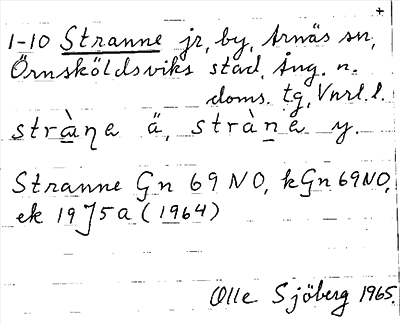 +
1-10 Stranne jr, by, Arnäs sn,
Örnsköldsviks stad, Ång. n.
doms. tg, Vnrl. l.
stràṉa ä, stràṉe y.
Stranne Gn 69 NO, kGn 69 NO,
ek 19 J5a (1964)
Olle Sjöberg 1965.